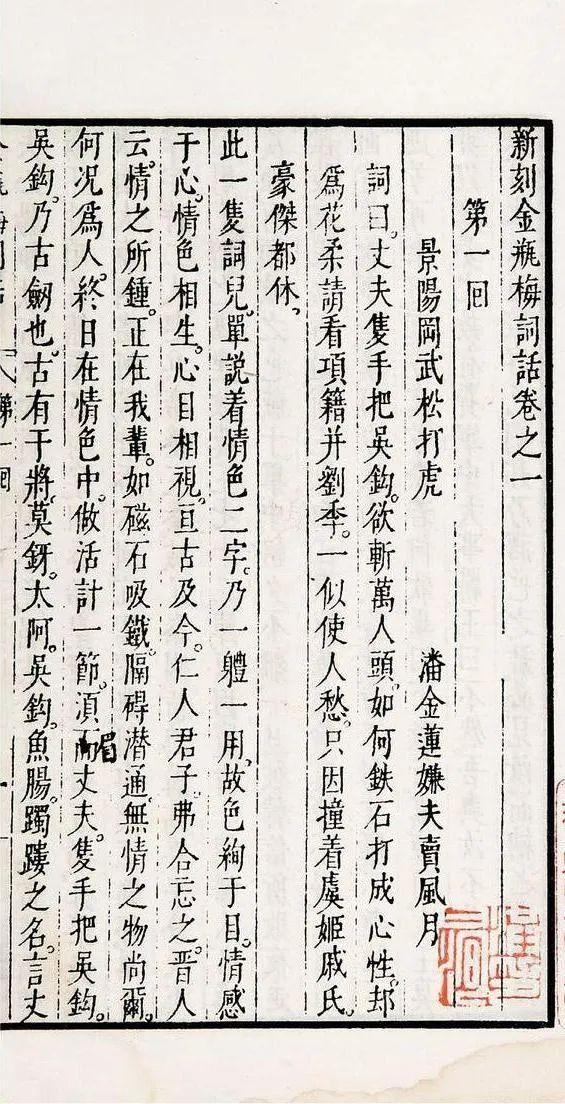 新刻金瓶梅詞話卷之一
第一回
景陽岡武松打虎　潘金蓮嫌夫賣風月
詞曰。丈夫隻手把吳鈎。欲斬萬人頭。如何鉄石打成心性。却
爲花柔請看項籍并劉季。一似使人愁。只因撞着虞姬戚氏。
豪傑都休。
此一隻詞兒。單説着情色二字。乃一體一用。故色絢于目。情感
于心。情色相生。心目相視。亘古及今。仁人君子。弗合忘之。晋人
云。情之所鍾。正在我輩。如磁石吸鐵。隔碍潜通。無情之物尚爾。
何况爲人。終日在情色中。做活計一節。須而丈夫隻手把吳鈎。
吳鈎。乃古劒也。古有干將。莫釾。太阿。吳鈎。魚腸。躅䠧之名。言丈
第一回